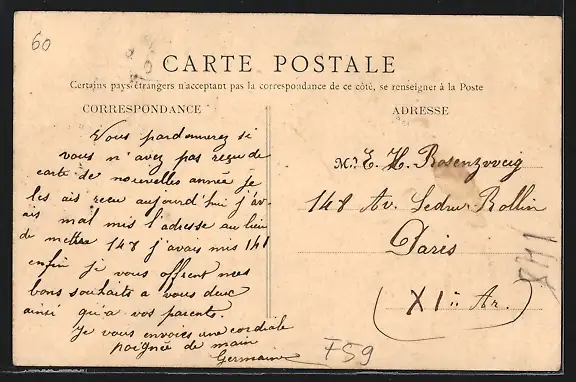 60
CARTE POSTALE
Certains pays étrangers n'acceptant pas la correspondance de ce côté, se renseigner à la Poste
CORRESPONDANCE
Vous pardonnerez si
vous n'avez pas reçu de
carte de nouvelles année je
les ais recu aujourd'hui j'av-
ais mal mis l'adresse au lieu
de mettre 148 j'avais mis 141
enfin je vous offrent mes
bons souhaits a vous deux
ainsi qu'a vos parents.
Je vous envoies une cordiale
poignée de main
Germaine
ADRESSE
M. E. H. Rosenzweig
148 Av. Ledru Rollin
Paris
(XIie Ar.)
F59